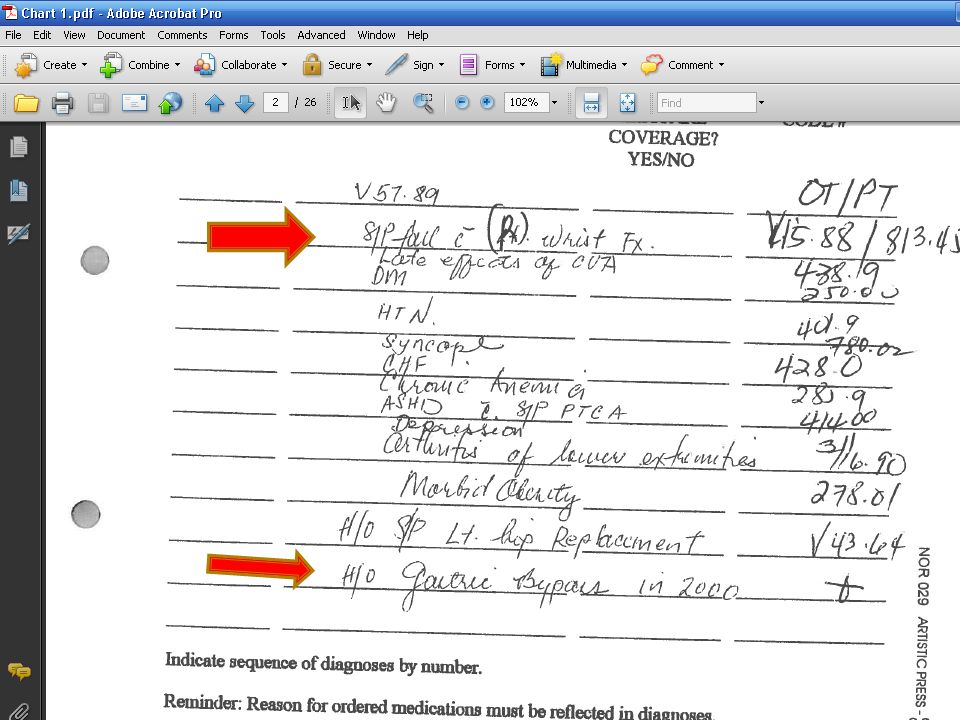 Chart 1.pdf - Adobe Acrobat Pro
File Edit View Document Comments Forms Tools Advanced Window Help
Create Combine Collaborate Secure Sign Forms Multimedia Comment
2 / 26 102% Find
COVERAGE? CODE#
YES/NO
V57.89 OT/PT
S/P fall c̄ (Rt. wrist Fx. V15.88 / 813.45
Late effects of CVA 438.9
DM 250.00
HTN. 401.9
Syncope 780.02
CHF 428.0
Chronic Anemia 285.9
ASHD c̄. S/P PTCA 414.00
Depression 311
Arthritis of lower extremities 716.90
Morbid Obesity 278.01
H/O S/P Lt. hip Replacement V43.64
H/O Gastric Bypass in 2000
Indicate sequence of diagnoses by number.
Reminder: Reason for ordered medications must be reflected in diagnoses.
NOR 029 ARTISTIC PRESS -